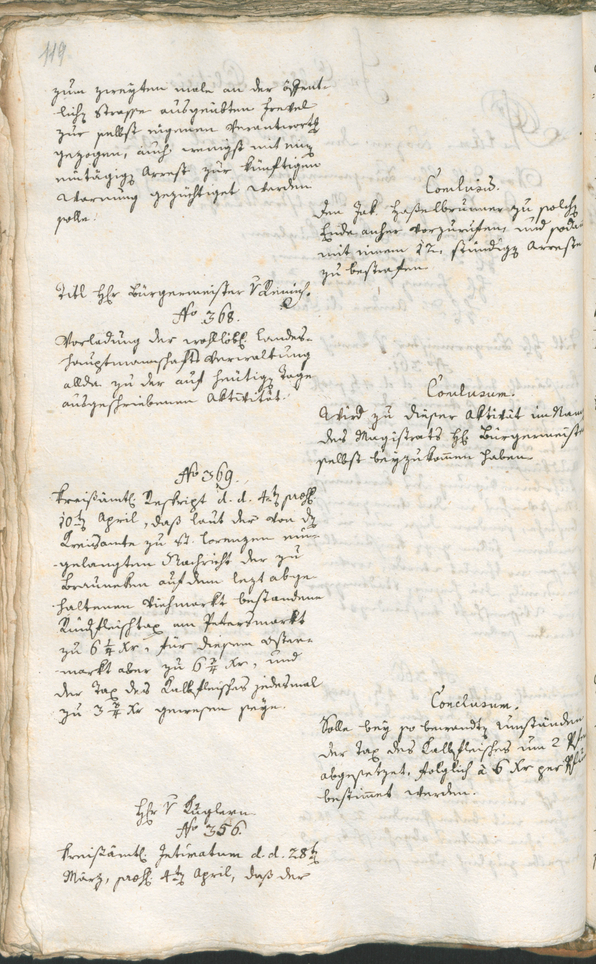 119
zum zweyten male an der öffent-
lich Strasse ausgeübten Frevel
zur selbst eigenen Verantwortg
gezogen, auch wenigst mit
Arrest zur künftigen
Warnung gezüchtiget werden
solle.
Conclusum.
Den Jak. Haßelbrunner zu solch
Ende anher vorzurufen, und soda
mit einem 12 stündig Arreste
zu bestrafen.
Titl H Bürgermeister v
No 368.
Vorladung der wohllöbl. Landes-
hauptmannschafts Verwaltung
allda zu der auf heutig Tage
ausgeschriebenen Aktivität.
Conclusum.
Wird zu dieser Aktivität im Nam
des Magistrats H Bürgermeist
selbst beyzukom̅en haben.
No 369.
Kreisämtl Reskript d. d. 4t praes
10t April, daß laut der von d
Kreisamte zu St. Lorenzen ein-
gelangten Nachricht der zu
Brauneken auf dem lezt abge-
haltenen Viehmarkt bestandene
Rindfleischtax am Petersmarkt
zu 6 1/4 Xr, für diesen Oster-
markt aber zu 6 3/4 Xr, und
der Tax des Kalbfleisches jedesmal
zu 3 3/4 Xr gewesen seye.
Conclusum.
Solle bey so bewandt Umständen
der Tax des Kalbfleisches um 2
abgesetzet, folglich à 6 Xr per
bestim̅et werden.
H v Kuglern
No 356
Kreisämtl Intimatum d. d. 28t
März, praes 4t April, daß der